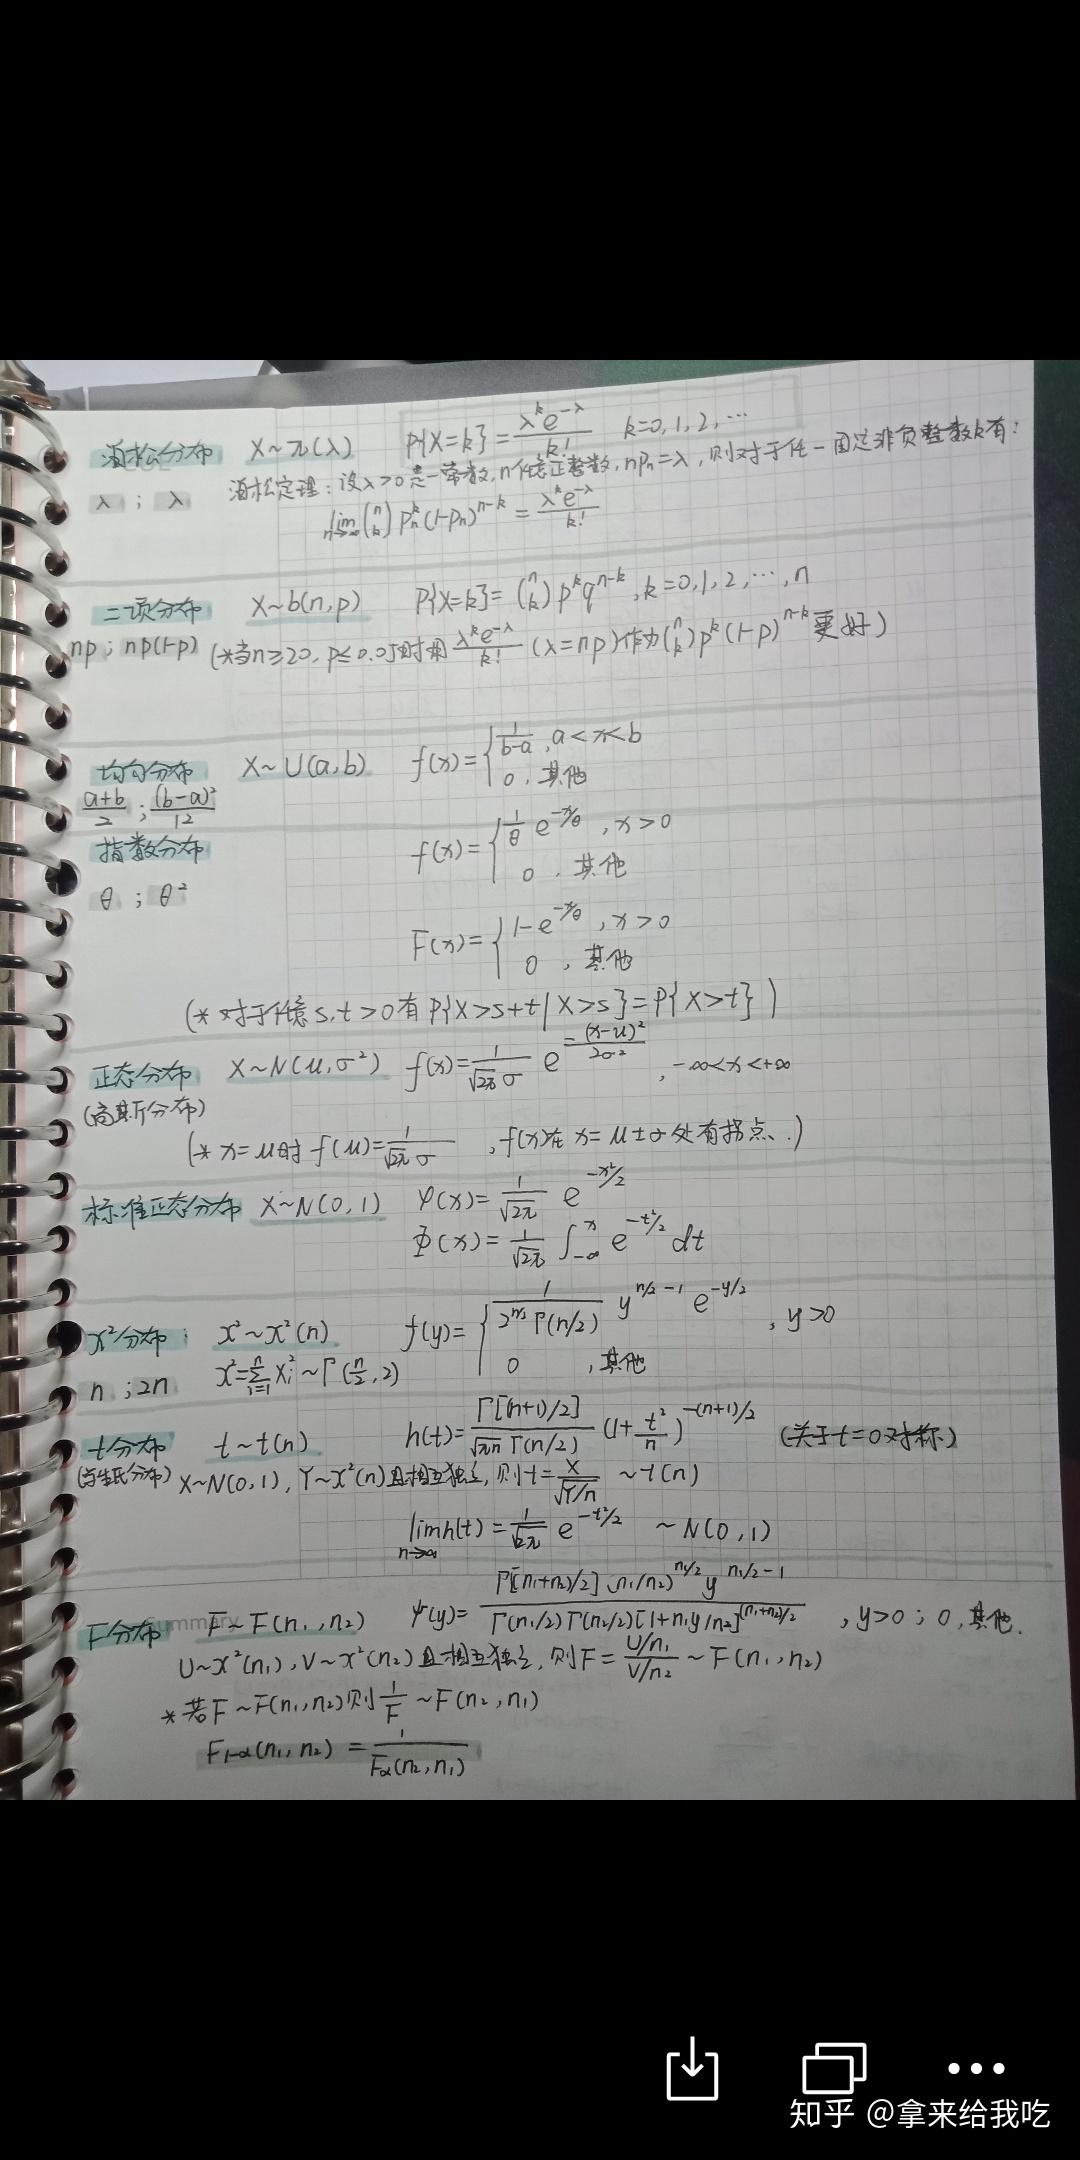 泊松分布 X~π(λ) P{X=k}=λ^k e^{-λ}/k! k=0,1,2,…
λ ; λ 泊松定理：设λ>0是一常数,n任意正整数,npₙ=λ,则对于任一固定非负整数k有：
lim_{n→∞} (n k) pₙ^k (1-pₙ)^{n-k} = λ^k e^{-λ}/k!
二项分布 X~b(n,p) P{X=k}=(n k) p^k q^{n-k}, k=0,1,2,…,n
np ; np(1-p) (*当n≥20,p≤0.05时用 λ^k e^{-λ}/k! (λ=np)作为(n k) p^k (1-p)^{n-k}更好)
均匀分布 X~U(a,b) f(x)={ 1/(b-a), a<x<b
0, 其他
(a+b)/2 ; (b-a)²/12
指数分布 f(x)={ 1/θ e^{-x/θ}, x>0
0, 其他
θ ; θ²
F(x)={ 1-e^{-x/θ}, x>0
0, 其他
(*对于任意s,t>0有P{X>s+t|X>s}=P{X>t})
正态分布 X~N(μ,σ²) f(x)=1/(√2π σ) e^{-(x-μ)²/2σ²}, -∞<x<+∞
(高斯分布)
(*x=μ时 f(μ)=1/(√2π σ), f(x)在x=μ±σ处有拐点.)
标准正态分布 X~N(0,1) φ(x)=1/√2π e^{-x²/2}
Φ(x)=1/√2π ∫_{-∞}^{x} e^{-t²/2} dt
χ²分布: χ²~χ²(n) f(y)={ 1/(2^{n/2} Γ(n/2)) y^{n/2-1} e^{-y/2}, y>0
0, 其他
n ; 2n χ²=∑_{i=1}^{n} Xᵢ²~Γ(n/2,2)
t分布 t~t(n) h(t)=Γ[(n+1)/2]/(√πn Γ(n/2)) (1+t²/n)^{-(n+1)/2} (关于t=0对称)
(学生氏分布) X~N(0,1), Y~χ²(n)且相互独立,则t=X/√(Y/n) ~t(n)
lim_{n→∞} h(t)=1/√2π e^{-t²/2} ~N(0,1)
F分布 Summary F~F(n₁,n₂) ψ(y)=Γ[(n₁+n₂)/2] (n₁/n₂)^{n₁/2} y^{n₁/2-1}/(Γ(n₁/2)Γ(n₂/2)[1+n₁y/n₂]^{(n₁+n₂)/2}), y>0 ; 0, 其他.
U~χ²(n₁), V~χ²(n₂)且相互独立,则F=(U/n₁)/(V/n₂)~F(n₁,n₂)
*若F~F(n₁,n₂)则1/F~F(n₂,n₁)
F_{1-α}(n₁,n₂)=1/F_α(n₂,n₁)
知乎 @拿来给我吃